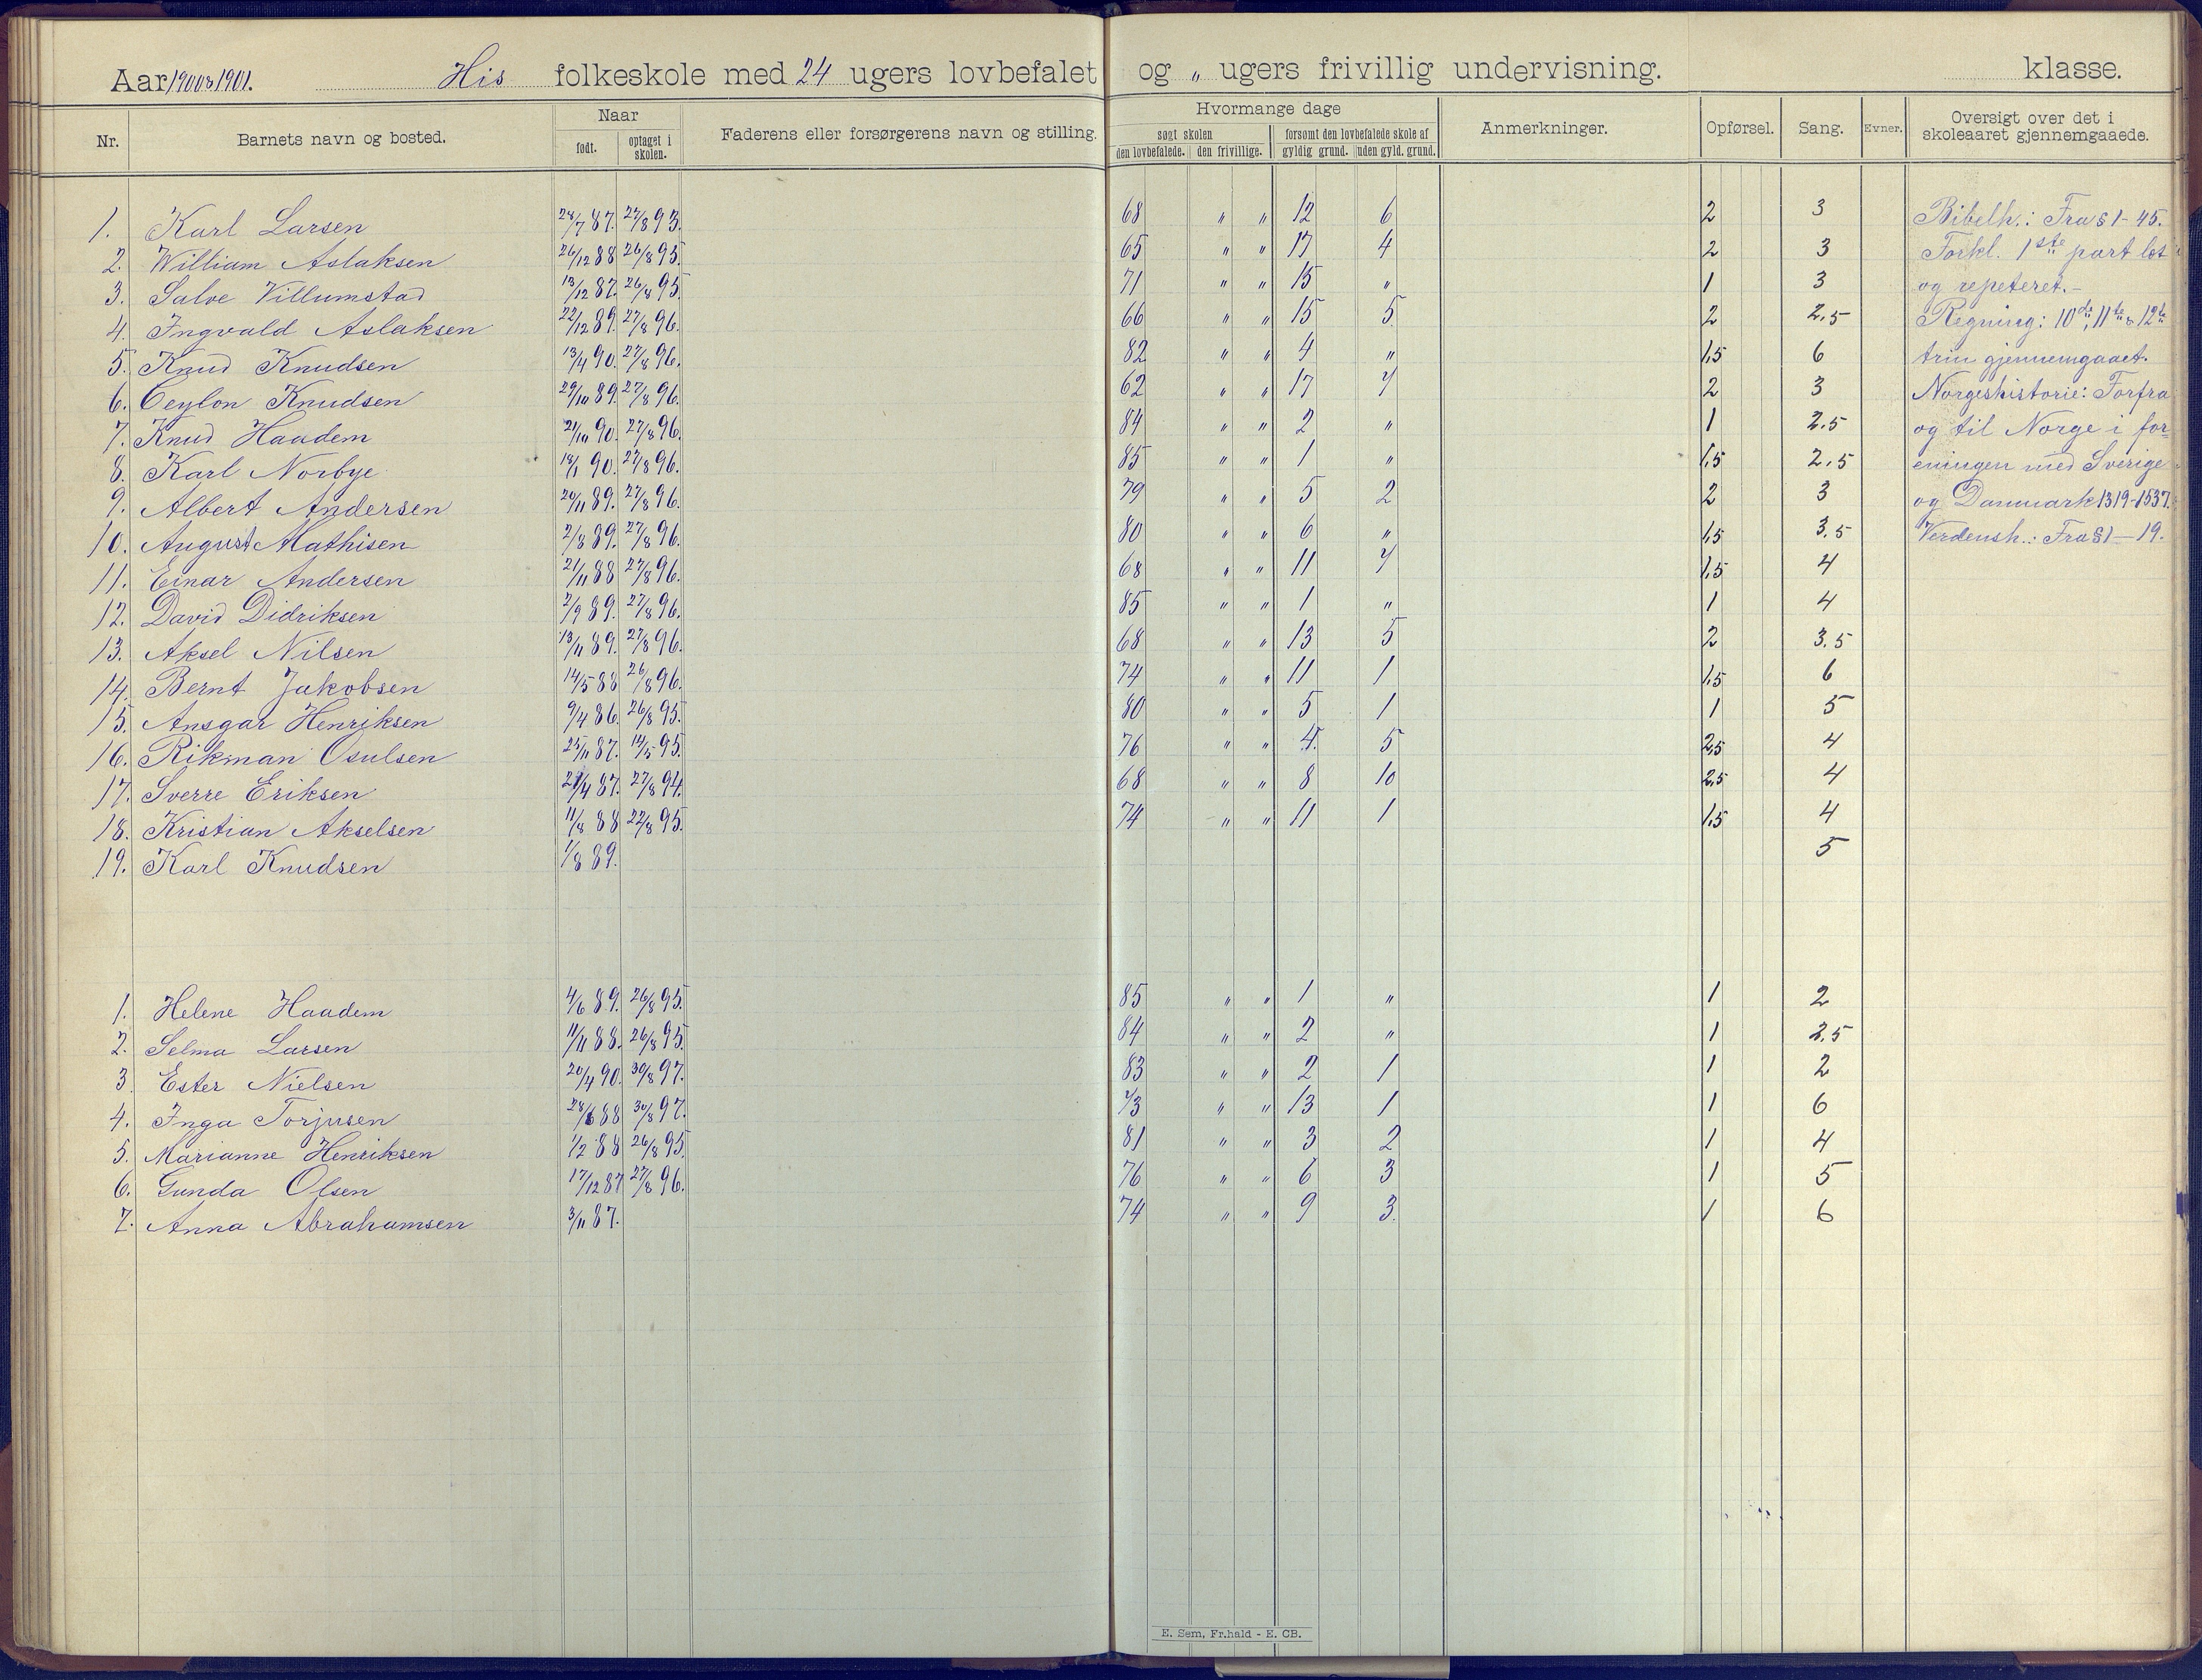 Aar 1900 & 1901. His folkeskole med 24 ugers lovbefalet og „ ugers frivillig undervisning. klasse.
Nr. Barnets navn og bosted. Naar født. optaget i skolen. Faderens eller forsørgerens navn og stilling. Hvormange dage søgt skolen den lovbefalede. den frivillige. forsømt den lovbefalede skole af gyldig grund. uden gyld. grund. Anmerkninger. Opførsel. Sang. Evner. Oversigt over det i skoleaaret gjennemgaaede.
1. Karl Larsen 28/7 87. 27/8 93. 68 „ „ 12 6 2 3 Bibelh.: Fra § 1-45.
2. William Aslaksen 26/12 88 26/8 95. 65 „ „ 17 4 2 3 Forkl. 1ste part læst
3. Salve Villumstad 13/12 87. 26/8 95. 71 „ „ 15 „ 1 3 og repeteret.-
4. Ingvald Aslaksen 22/12 89. 27/8 96. 66 „ „ 15 5 2 2,5 Regning: 10de, 11te & 12te
5. Knud Knudsen 13/4 90. 27/8 96. 82 „ „ 4 „ 1,5 6 trin gjennemgaaet.
6. Ceylon Knudsen 29/10 89. 27/8 96. 62 „ „ 17 7 2 3 Norgeshistorie: Forfra
7. Knud Haadem 21/10 90. 27/8 96. 84 „ „ 2 „ 1 2,5 og til Norge i for-
8. Karl Norbye 18/1 90. 27/8 96. 85 „ „ 1 „ 1,5 2,5 eningen med Sverige
9. Albert Andersen 20/11 89. 27/8 96. 79 „ „ 5 2 2 3 og Danmark 1319-1537.
10. August Mathisen 2/8 89. 27/8 96. 80 „ „ 6 „ 1,5 3,5 Verdensh.: Fra § 1-19.
11. Einar Andersen 21/11 88 27/8 96. 68 „ „ 11 7 1,5 4
12. David Didriksen 2/9 89. 27/8 96. 85 „ „ 1 „ 1 4
13. Aksel Nilsen 13/11 89. 27/8 96. 68 „ „ 13 5 2 3,5
14. Bernt Jakobsen 14/5 88 26/8 96. 74 „ „ 11 1 1,5 6
15. Ansgar Henriksen 9/4 86. 26/8 95. 80 „ „ 5 1 1 5
16. Rikman Osulsen 25/11 87. 14/5 95. 76 „ „ 4. 5 2,5 4
17. Sverre Eriksen 29/4 87. 27/8 94. 68 „ „ 8 10 2,5 4
18. Kristian Akselsen 11/8 88 22/8 95. 74 „ „ 11 1 1,5 4
19. Karl Knudsen 1/8 89. 5
1. Helene Haadem 4/6 89. 26/8 95. 85 „ „ 1 „ 1 2
2. Selma Larsen 11/11 88. 26/8 95. 84 „ „ 2 „ 1 2,5
3 Ester Nielsen 20/4 90. 30/8 97. 83 „ „ 2 1 1 2
4. Inga Torjusen 28/6 88 30/8 97. 73 „ „ 13 1 1 6
5. Marianne Henriksen 1/2 88 26/8 95. 81 „ „ 3 2 1 4
6. Gunda Olsen 17/12 87 27/8 96. 76 „ „ 6 3 1 5
7. Anna Abrahamsen 3/11 87. 74 „ „ 9 3. 1 6
E. Sem, Fr.hald - E. CB.